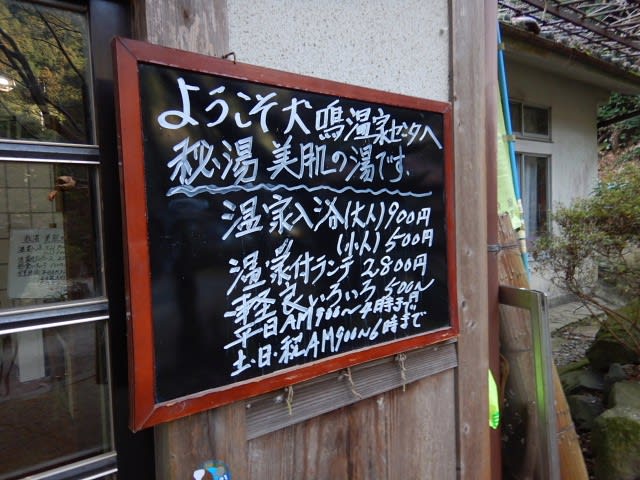 ようこそ犬鳴温泉センターへ
秘湯 美肌の湯です.
温泉入浴(大人)900円
(小人)500円
温泉付ランチ 2800円
軽食いろいろ 500〜
平日AM900〜4時まで
土・日・祝AM900〜6時まで